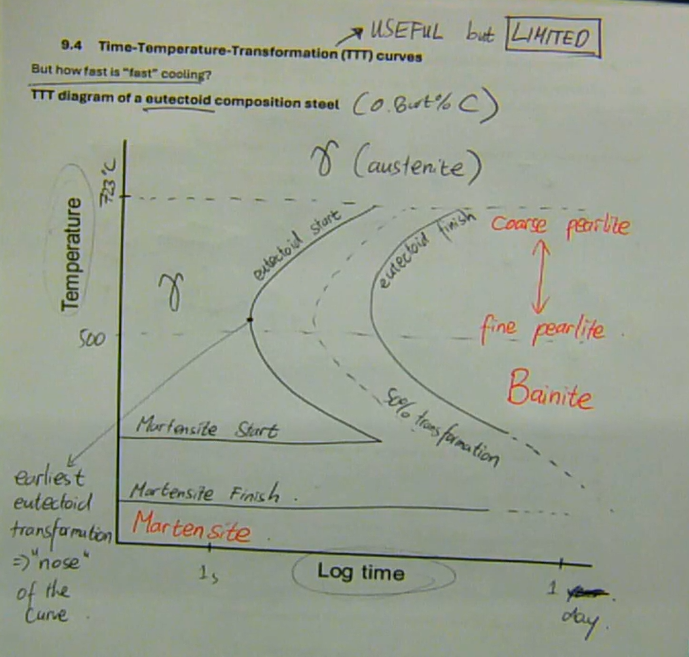 USEFUL but LIMITED
9.4 Time-Temperature-Transformation (TTT) curves
But how fast is "fast" cooling?
TTT diagram of a eutectoid composition steel (0.8wt% C)
γ (austenite)
723°C
Temperature
eutectoid start
eutectoid finish
coarse pearlite
γ
fine pearlite
500
Bainite
50% transformation
Martensite Start
earliest
eutectoid
transformation
=> "nose"
of the
curve.
Martensite Finish.
Martensite
1s
Log time
1
day.